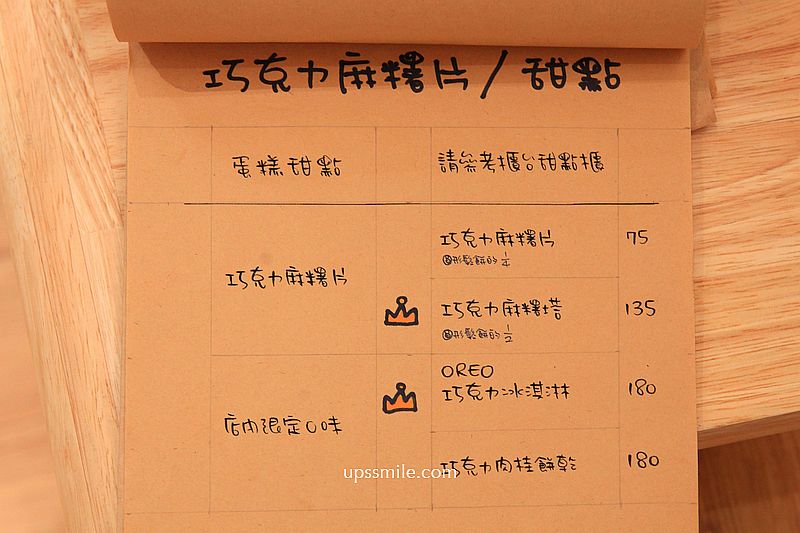 巧克力麻糬片/甜點
蛋糕甜點
請參考櫃台甜點櫃
巧克力麻糬片
巧克力麻糬片 75
圓形鬆餅的 1/4
巧克力麻糬塔 135
圓形鬆餅的 1/2
店內限定口味
OREO
巧克力冰淇淋 180
巧克力肉桂餅乾 180
upssmile.com